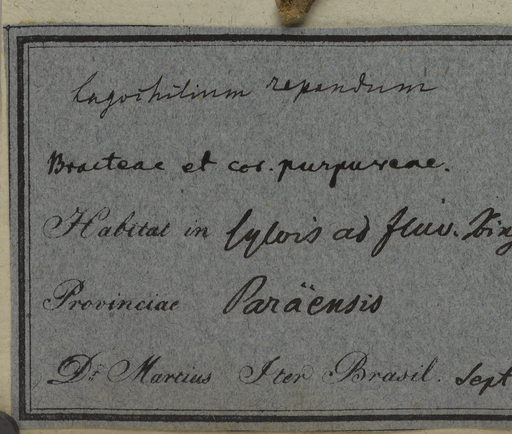 Lagochilium repandum
Bracteae et cor. purpureae.
Habitat in sylvis ad fluv. Xing
Provinciae Paräensis
Dr. Martius Iter Brasil. Sept